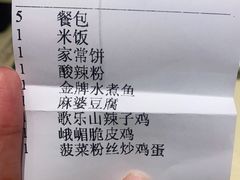 5 餐包
1 米饭
1 家常饼
1 酸辣粉
1 金牌水煮鱼
1 麻婆豆腐
1 歌乐山辣子鸡
1 峨嵋脆皮鸡
1 菠菜粉丝炒鸡蛋